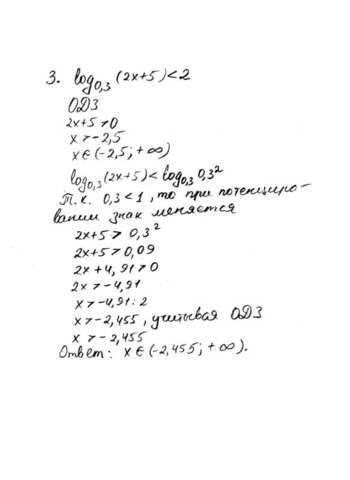 3. log₀,₃ (2x+5) < 2
ОДЗ
2x+5 > 0
x > -2,5
x ∈ (-2,5; +∞)
log₀,₃ (2x+5) < log₀,₃ 0,3²
Т.к. 0,3 < 1, то при потенциро-
вании знак меняется
2x+5 > 0,3²
2x+5 > 0,09
2x + 4,91 > 0
2x > -4,91
x > -4,91 : 2
x > -2,455, учитывая ОДЗ
x > -2,455
Ответ: x ∈ (-2,455; +∞).